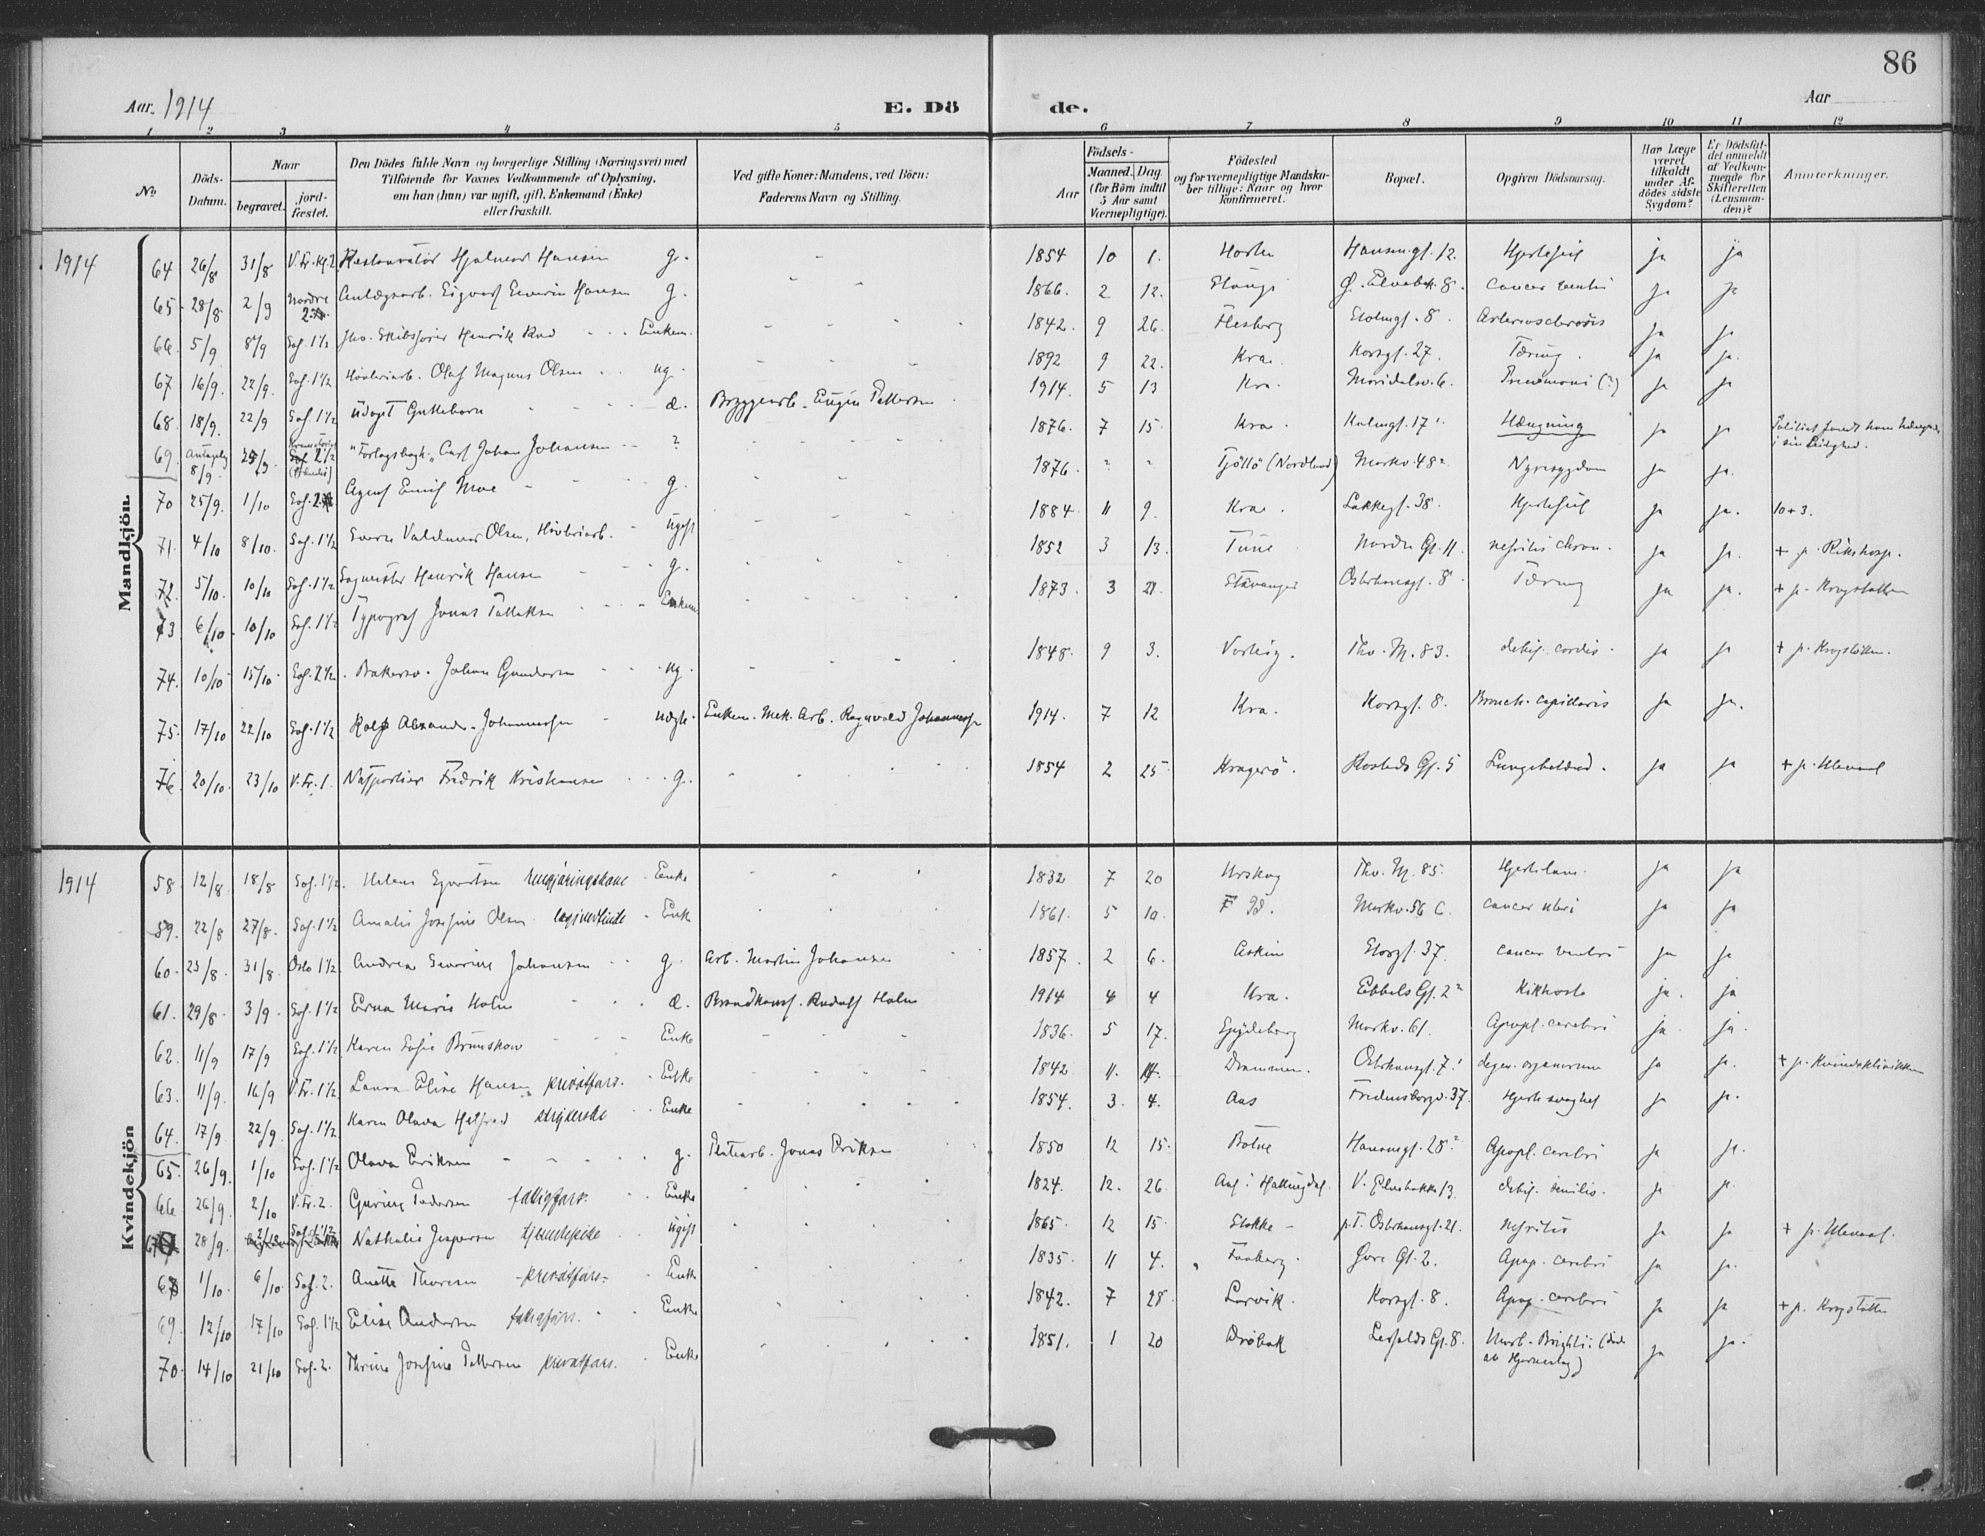 86
Aar. 1914 E. Dö de. Aar
1 2 3 4 5 6 7 8 9 10 11 12
No
Döds-Datum.
Naar
begravet.
jord-fæstet.
Den Dödes fulde Navn og borgerlige Stilling (Næringsvei) med
Tilföiende for Voxnes Vedkommende af Oplysning,
om han (hun) var ugift, gift, Enkemand (Enke)
eller fraskilt.
Ved gifte Koner: Mandens, ved Börn:
Faderens Navn og Stilling.
Födsels-
Aar
Maaned. Dag
(for Börn indtil
5 Aar samt
Værnepligtige).
Födested
og for værnepligtige Mandska-
ber tillige: Naar og hvor
konfirmeret.
Bopæl.
Opgiven Dödsaarsag.
Har Læge
været
tilkaldt
under Af-
dödes sidste
Sygdom?
Er Dödsfal-
det anmeldt
af Vedkom-
mende for
Skifteretten
(Lensman-
den)?
Anmærkninger.
Mandkjön.
1914 64 26/8 31/8 V. Fr. Kg. 2 Restauratör Hjalmar Hansen g. 1854 10 1. Horten Hansmgf. 12. Hjertefeil ja ja
65 28/8 2/9 Nordre Anlægsarb. Sigvart Severin Hansen g. 1866. 2 12. Ø. Elvebk. 8. cancer ventri ja ja
66. 5/9 8/9 Sof. 1½ Skibsfører Henrik Enkem. 1842. 9 26. Flesberg Holmgf. 8. Arteriosclerosis ja ja
67 16/9. 22/9. Sof. 1½ Høvleriarb. Olaf Magnus Olsen ug. 1892 9 22. Kra. Korsgf. 27. Tæring. ja ja.
68. 18/9. 22/9 Sof. 1½ udøpt Guttebarn æ. Bryggearb. Eugen Pettersen 1914. 5 13 Kra. Maridalsv. 6. Pneumoni (?) ja ja
69. Antagelig 8/9. Sof 2½ "Forlagsbogh." Carl Johan Johansen ? 1876. 7 15. Kra. Holmgf. 17 Hængning ja ja Politiet fandt ham hængende i sin Leilighed.
70 25/9. 1/10 Sof. Agent Emil Moe g. 1876. " " Tjöttö (Nordland) Markv. 48 Nyresygdom ja ja.
71. 4/10 8/10. Sof. 1½ Sverre Valdemar Olsen, Høvleriarb. ugift 1884 11 9. Kra. Lakkegf. 38. Hjertefeil ja ja. 10+3.
72. 5/10. 10/10 Sof. 1½ Sagmester Henrik Hansen g. 1852 3 13. Tune Nordre Gt. 11. nefritis chron. ja ja. + p. Rikshosp.
73 6/10. 10/10 Sof. 1½ Typograf Jonas Tallaksen Enkem 1873. 3 21. Stavanger Osterhausgf. 8 Tæring ja ja. + p. Krogstøtten
74. 10/10 15/10 Sof. 2½ Bakersv. Johan Gundersen ug. 1848. 9 3. Thv. M. 83. debil. cordis ja ja + p. Krogstøtten.
75. 17/10 22/10 Sof. 1½ Rolf Alexander Johannessen uægte. Enkem. Mek. Arb. Ragnvald Johannessen 1914. 7 12 Kra. Korsgf. 8. Bronch. capillaris ja ja.
76. 20/10. 23/10 V. Fr. 1. Natportier Fredrik Kristiansen g. 1854 2 25 Kragerö. Rosteds Gt. 5 Lungebetænd. ja ja + p. Ullevaal
Kvindekjön
1914 58. 12/8. 18/8 Sof. 1½. Helene Syvertsen rengjøringskone Enke 1832 7 20 Urskog Thv. M. 85. Hjertelam. ja ja
59. 22/8 27/8. Sof. 1½ Amalie Josefine Olsen logivertinde Enke 1861. 5 10. F. Id. Markv. 56 C. cancer uteri ja ja
60. 25/8. 31/8. Oslo 1½ Andrea Severine Johansen g. Arb. Martin Johansen 1857. 2 6. Askim Storgf. 37. cancer ventri ja ja
61. 29/8. 3/9. Sof. 1½ Erna Marie Holm æ. Brandkonst. Rudolf Holm 1914 4 4 Kra. Ebbels Gt. 2 Kikhoste ja. ja
62. 11/9 17/9 Sof. 1½ Karen Sofie Brunskow Enke 1836. 5 17. Spydeberg Markv. 61. Apopl. cerebri ja. ja.
63. 11/9. 16/9 V. Fr. 1½ Laura Elise Hansen privatfors. Enke 1842. 11. 14. Drammen. Osterhausgf. 7 degen. organorum ja ja. + p. Kvindeklinikken
64. 17/9 22/9. Sof. 1½ Karen Olava Halfred strykerske Enke 1854. 3. 4. Aas Fredensborgv. 37. Hjertesvaghet ja ja.
65. 26/9. 1/10 Sof. 1½ Olava Eriksen g. Jonas Eriksen 1850 12 15. Botne Hansmgf. 28 Apopl. cerebri ja ja.
66 26/9. 2/10 V. Fr. 2. Guring Pedersen fattigfors. Enke 1824. 12. 26. Aal i Hallingdal V. Elvebakke 13. debil. senilis. ja ja.
67 28/9. Nathalie Jespersen tjenestepike ugift 1865. 12 15. Stokke p.T. Osterhausgt. 21. nefritis ja ja + p. Ullevaal.
68 1/10. 6/10. Sof. 2. Anette Thoresen privatfors. Enke 1835. 11 4. Faaberg. Gøre Gt. 2. Apop. cerebri ja ja.
69. 12/10 17/10 Sof. 1½ Elise Andersen fattigfors. Enke 1842. 7 28. Larvik. Korsgf. 8. Apop. cerebri ja ja + p. Krogstøtten
70. 14/10 21/10 Sof. 2. Thrine Josefine Pettersen privatfors. Enke 1851. 1 20 Drøbak Leirfalds Gt. 8. Morb. Brightii (død
af Hjerneslag) ja ja.